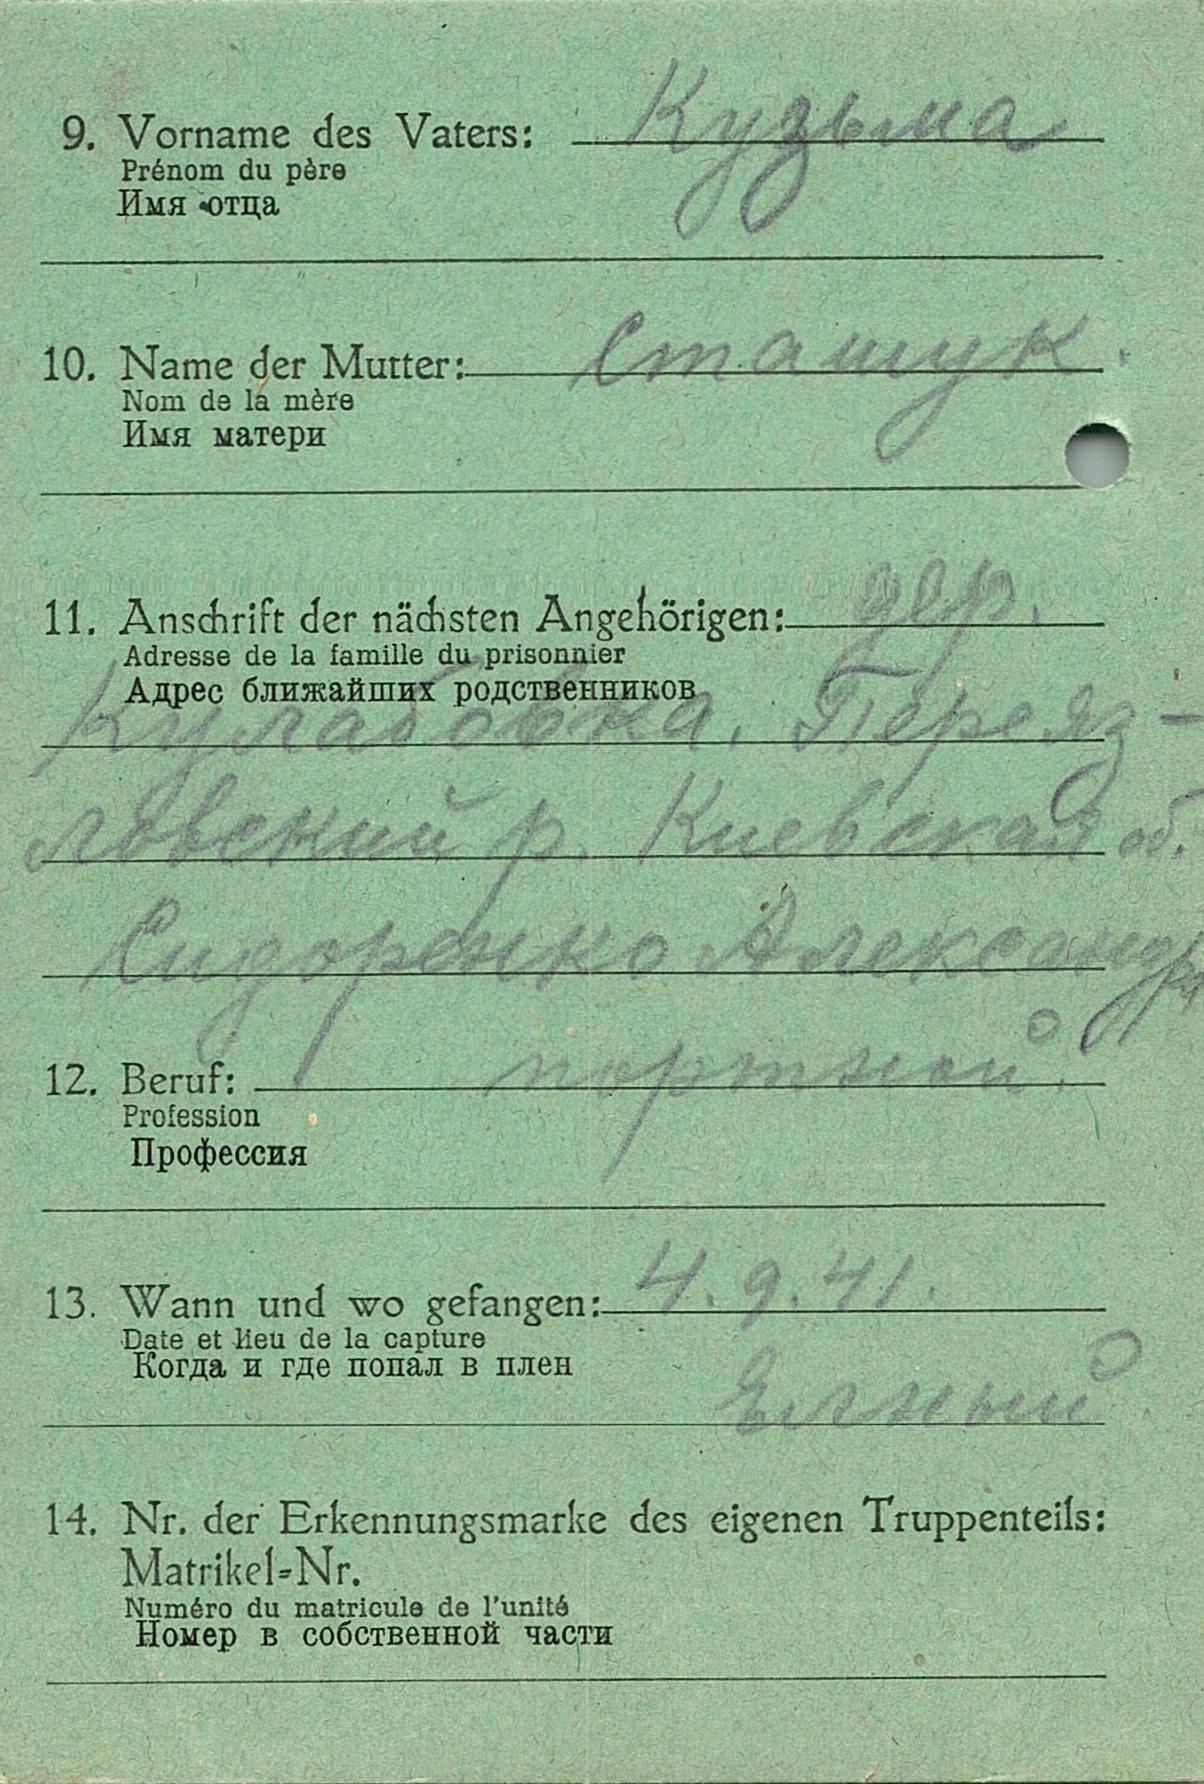 9. Vorname des Vaters: Кузьма
Prénom du père
Имя отца
10. Name der Mutter: Сташук.
Nom de la mère
Имя матери
11. Anschrift der nächsten Angehörigen: дер.
Adresse de la famille du prisonnier
Адрес ближайших родственников
Перрeяз-
ловский р. Киевская об.
Сидоренко Александра
12. Beruf: портной.
Profession
Профессия
13. Wann und wo gefangen: 4.9.41.
Date et lieu de la capture
Когда и где попал в плен
14. Nr. der Erkennungsmarke des eigenen Truppenteils:
Matrikel-Nr.
Numéro du matricule de l'unité
Номер в собственной части